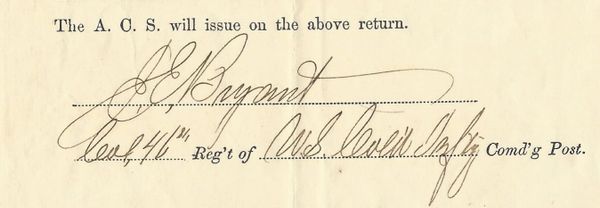 The A. C. S. will issue on the above return.
J. E. Bryant
Col, 46th, Reg't of U.S. Col'd Inf'ty Comd'g Post.